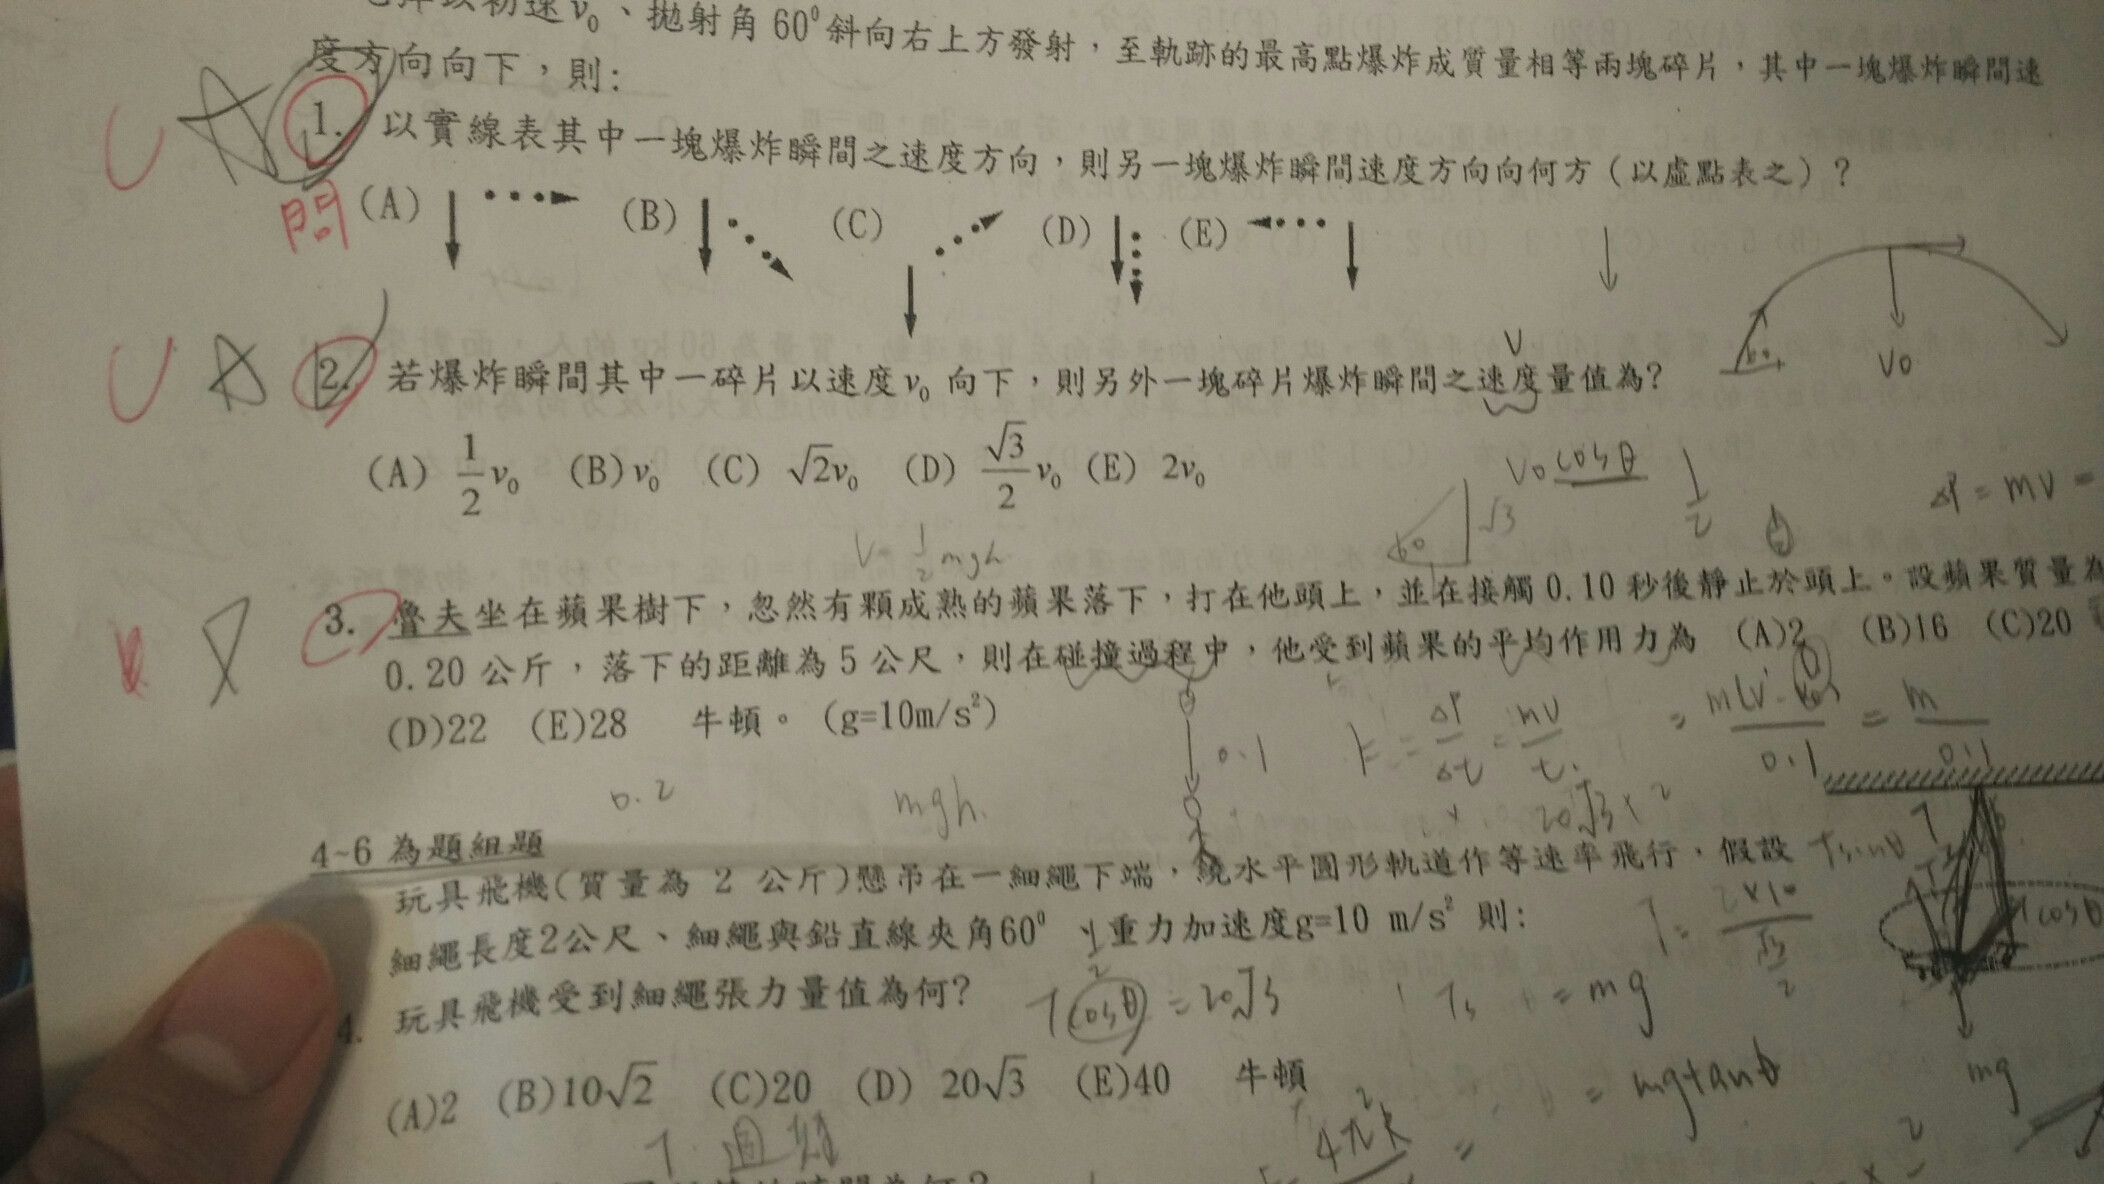 以初速v₀、拋射角60⁰斜向右上方發射，至軌跡的最高點爆炸成質量相等兩塊碎片，其中一塊爆炸瞬間速
度方向向下，則:
1. 以實線表其中一塊爆炸瞬間之速度方向，則另一塊爆炸瞬間速度方向向何方（以虛點表之）？
問
(A) (B) (C) (D) (E)
60
v₀
2. 若爆炸瞬間其中一碎片以速度v₀向下，則另外一塊碎片爆炸瞬間之速度量值為?
V
(A) 1/2 v₀ (B) v₀ (C) √2v₀ (D) √3/2 v₀ (E) 2v₀
V₀ cosθ 1/2
60 √3
ΔP = mV =
V= 1/2 mgh
3. 魯夫坐在蘋果樹下，忽然有顆成熟的蘋果落下，打在他頭上，並在接觸0.10秒後靜止於頭上。設蘋果質量為
0.20公斤，落下的距離為5公尺，則在碰撞過程中，他受到蘋果的平均作用力為 (A)2 (B)16 (C)20
(D)22 (E)28 牛頓。(g=10m/s²)
0.1
F = ΔP/Δt = mV/t
0.1
0.1
0.2 mgh.
20√3×2
4~6為題組題
玩具飛機(質量為 2 公斤)懸吊在一細繩下端，繞水平圓形軌道作等速率飛行，假設
Tsinθ
細繩長度2公尺、細繩與鉛直線夾角60⁰ 重力加速度g=10 m/s² 則:
4. 玩具飛機受到細繩張力量值為何?
Tcosθ = 20√3
= mg
mg
(A)2 (B)10√2 (C)20 (D) 20√3 (E)40 牛頓
= mgtanθ
T.週期